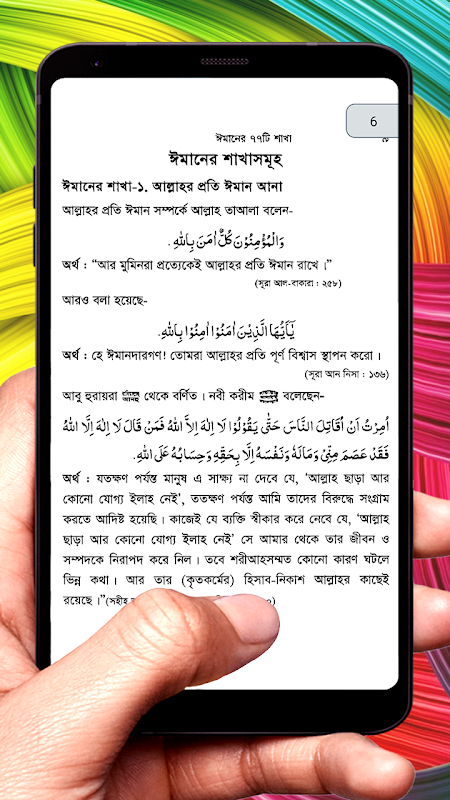 6
ঈমানের ৭৭টি শাখা
ঈমানের শাখাসমূহ
ঈমানের শাখা-১. আল্লাহর প্রতি ঈমান আনা
আল্লাহর প্রতি ঈমান সম্পর্কে আল্লাহ তাআলা বলেন-
وَالْمُؤْمِنُوْنَ كُلٌّ اٰمَنَ بِاللهِ.
অর্থ : “আর মুমিনরা প্রত্যেকেই আল্লাহর প্রতি ঈমান রাখে।”
(সূরা আল-বাকারা : ২৫৮)
আরও বলা হয়েছে-
يٰٓاَيُّهَا الَّذِيْنَ اٰمَنُوْا اٰمِنُوْا بِاللهِ.
অর্থ : হে ঈমানদারগণ! তোমরা আল্লাহর প্রতি পূর্ণ বিশ্বাস স্থাপন করো।
(সূরা আন নিসা : ১৩৬)
আবু হুরায়রা থেকে বর্ণিত। নবী করীম বলেছেন-
اُمِرْتُ اَنْ اُقَاتِلَ النَّاسَ حَتّٰى يَقُوْلُوْا لَا اِلٰهَ اِلَّا اللهُ فَمَنْ قَالَ لَا اِلٰهَ اِلَّا اللهُ
فَقَدْ عَصَمَ مِنِّىْ وَمَالَهٗ وَنَفْسَهٗ اِلَّا بِحَقِّهٖ وَحِسَابُهٗ عَلَى اللهِ.
অর্থ : যতক্ষণ পর্যন্ত মানুষ এ সাক্ষ্য না দেবে যে, ‘আল্লাহ ছাড়া আর
কোনো যোগ্য ইলাহ নেই’, ততক্ষণ পর্যন্ত আমি তাদের বিরুদ্ধে সংগ্রাম
করতে আদিষ্ট হয়েছি। কাজেই যে ব্যক্তি স্বীকার করে নেবে যে, ‘আল্লাহ
ছাড়া আর কোনো যোগ্য ইলাহ নেই’ সে আমার থেকে তার জীবন ও
সম্পদকে নিরাপদ করে নিল। তবে শরীআহসম্মত কোনো কারণ ঘটলে
ভিন্ন কথা। আর তার (কৃতকর্মের) হিসাব-নিকাশ আল্লাহর কাছেই
রয়েছে।”(সহীহ